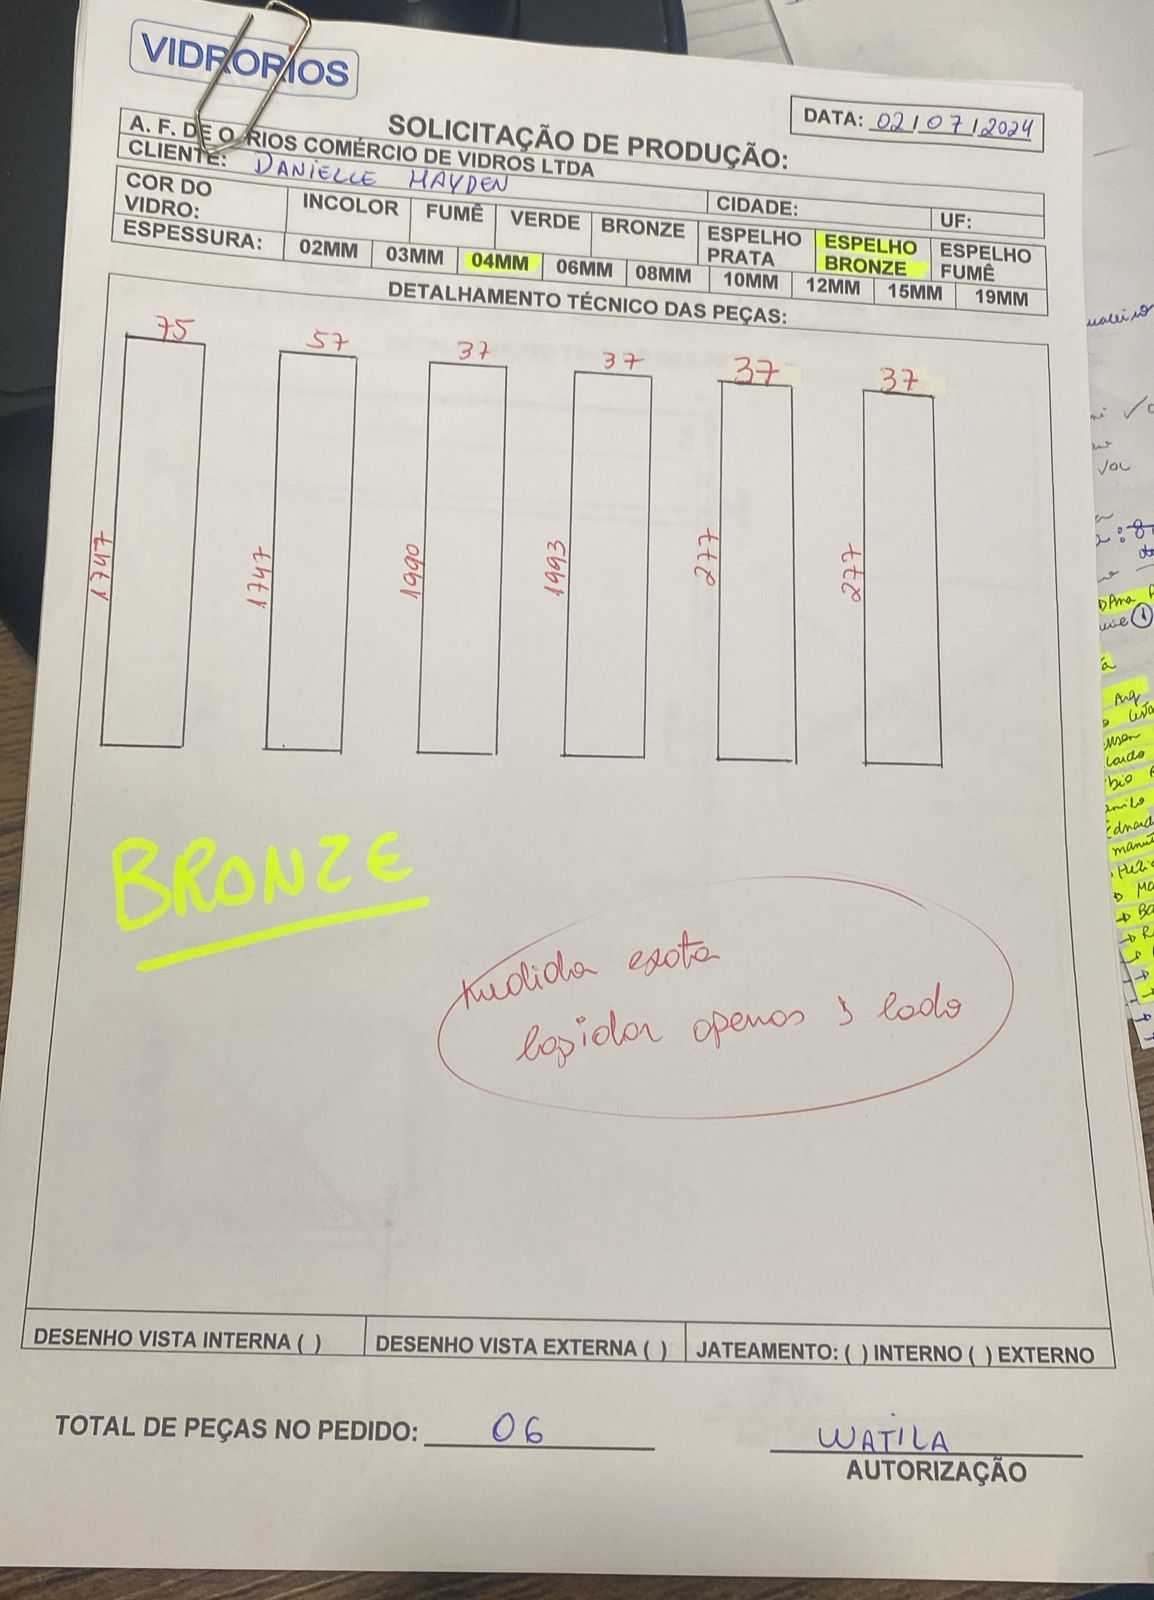 VIDRORIOS
DATA: 02/07/2024
SOLICITAÇÃO DE PRODUÇÃO:
A. F. DE O. RIOS COMÉRCIO DE VIDROS LTDA
CLIENTE: DANIELLE HAYDEN
CIDADE: UF:
COR DO VIDRO: INCOLOR FUMÊ VERDE BRONZE ESPELHO PRATA ESPELHO BRONZE ESPELHO FUMÊ
ESPESSURA: 02MM 03MM 04MM 06MM 08MM 10MM 12MM 15MM 19MM
DETALHAMENTO TÉCNICO DAS PEÇAS:
75 57 37 37 37 37
1747 1747 1990 1993 277 277
BRONZE
medida exata
lapidar apenas 1 lado
DESENHO VISTA INTERNA ( ) DESENHO VISTA EXTERNA ( ) JATEAMENTO: ( ) INTERNO ( ) EXTERNO
TOTAL DE PEÇAS NO PEDIDO: 06
WATILA
AUTORIZAÇÃO